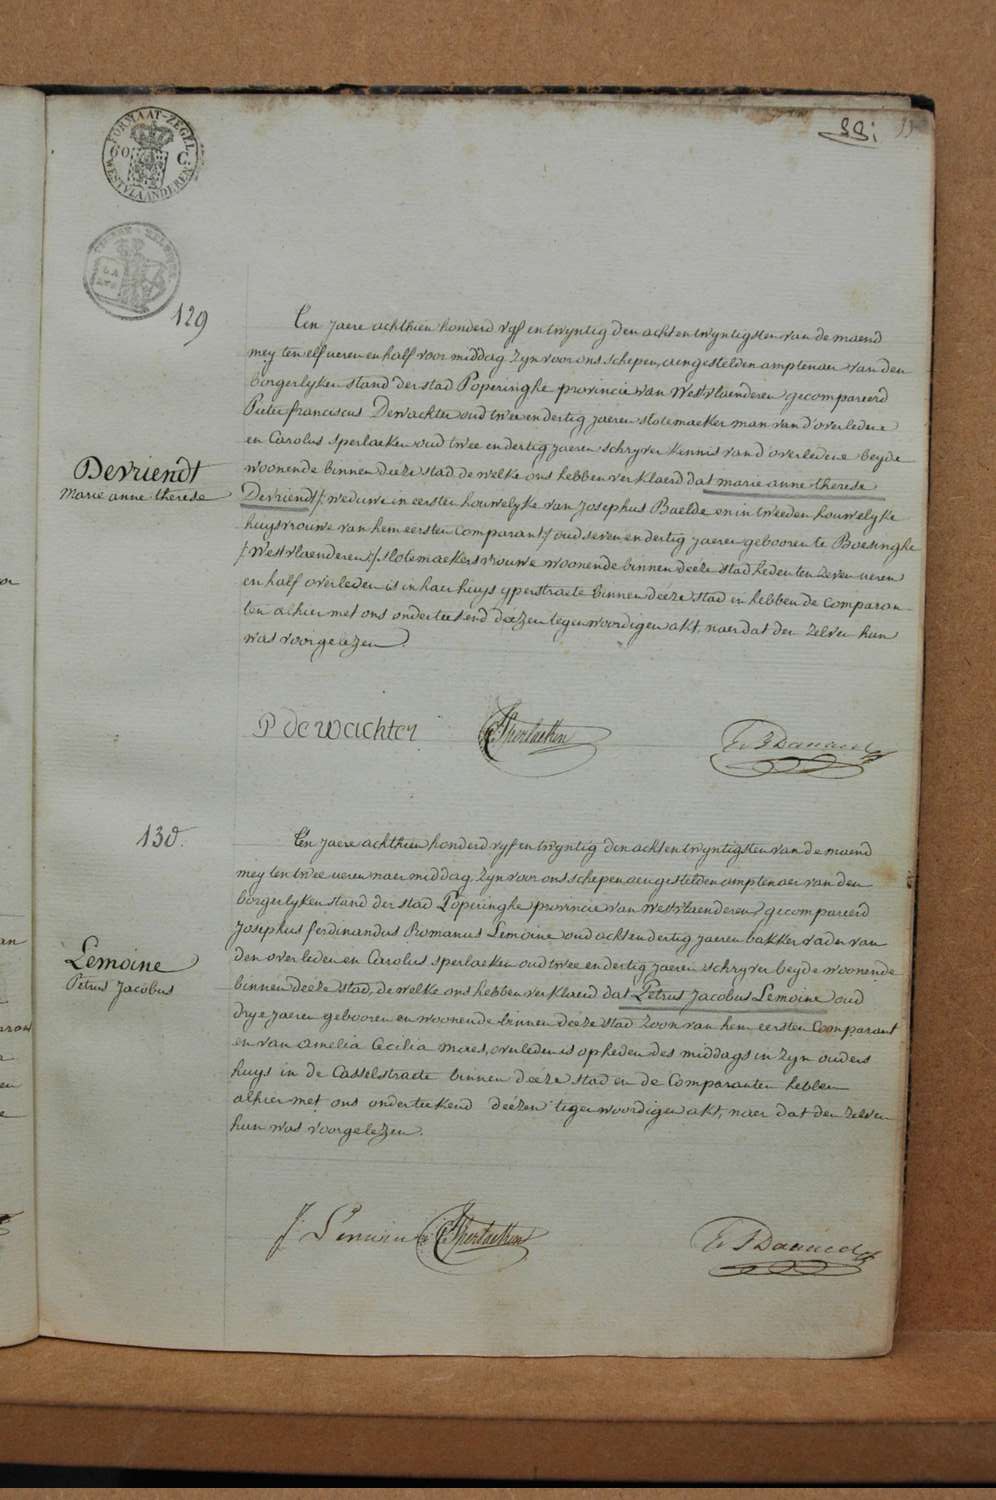 FORMAAT-ZEGEL
60 C
WESTVLAANDEREN
33
129
Devriendt
Marie anne therese
Ten jaere achthien honderd vyf en twyntig den acht en twyntigsten van de maend
mey ten elf ueren en half voor middag zyn voor ons schepen, aengestelden amptenaer van den
borgerlyken stand der stad Poperinghe provincie van Westvlaenderen gecompareerd
Pieter franciscus Dewachter oud twee en dertig jaeren slotemaeker man van d'overledene
en Carolus sperlaeken oud twee en dertig jaeren schryver kennis van d'overledene beyde
woonende binnen deeze stad de welke ons hebben verklaerd dat marie anne therese
Devriendt /: weduwe in eersten houwelyke van Josephus Baelde en in tweeden houwelyke
huysvrouwe van hem eersten comparant :/ oud seven en dertig jaeren gebooren te Boesinghe
/: Westvlaenderen :/ slotemaekersvrouwe woonende binnen deeze stad heden ten zeven ueren
en half overleden is in haer huys yperstraete binnen deéze stad en hebben de comparan-
ten alhier met ons onderteekend deézen tegenwoordigen akt, naer dat den zelven hun
was voorgelezen
P de wachter
C Sperlaeken
130.
Lemoine
Petrus Jacobus
Ten jaere achthien honderd vyf en twyntig den acht en twyntigsten van de maend
mey ten twee ueren naer middag zyn voor ons schepen aengestelden amptenaer van den
borgerlyken stand der stad Poperinghe provincie van Westvlaenderen gecompareerd
Josephus ferdinandus Romanus Lemoine oud acht en dertig jaeren bakker vader van
den overleden en Carolus sperlaeken oud twee en dertig jaeren schryver beyde woonende
binnen deéze stad, de welke ons hebben verklaerd dat Petrus Jacobus Lemoine oud
drye jaeren gebooren en woonende binnen deéze stad zoon van hem eersten Comparant
en van amelia Cecilia maes, overleden is op heden des middags in zyn ouders
huys in de Casselstraete binnen deéze stad en de Comparanten hebben
alhier met ons onderteekend deézen tegenwoordigen akt, naer dat den zelven
hun was voorgelezen.
J. Lemoine
C Sperlaeken